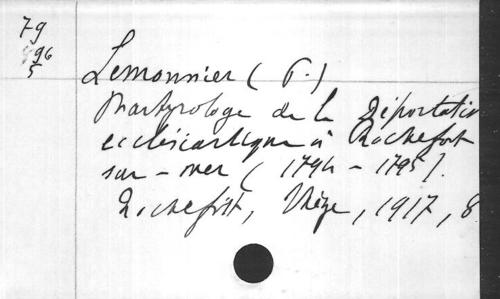 79
96
5
Lemonnier (P.)
Martyrologe de la Déportation
ecclésiastique à Rochefort
sur-mer (1794-1795).
Rochefort, Thèze, 1917, 8